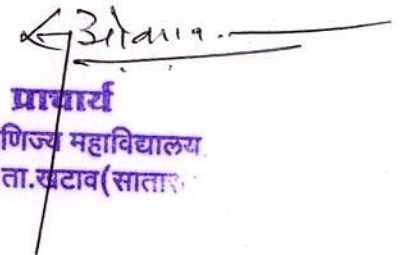 प्राचार्य
णिज्य महाविद्यालय
ता.खटाव(सातार